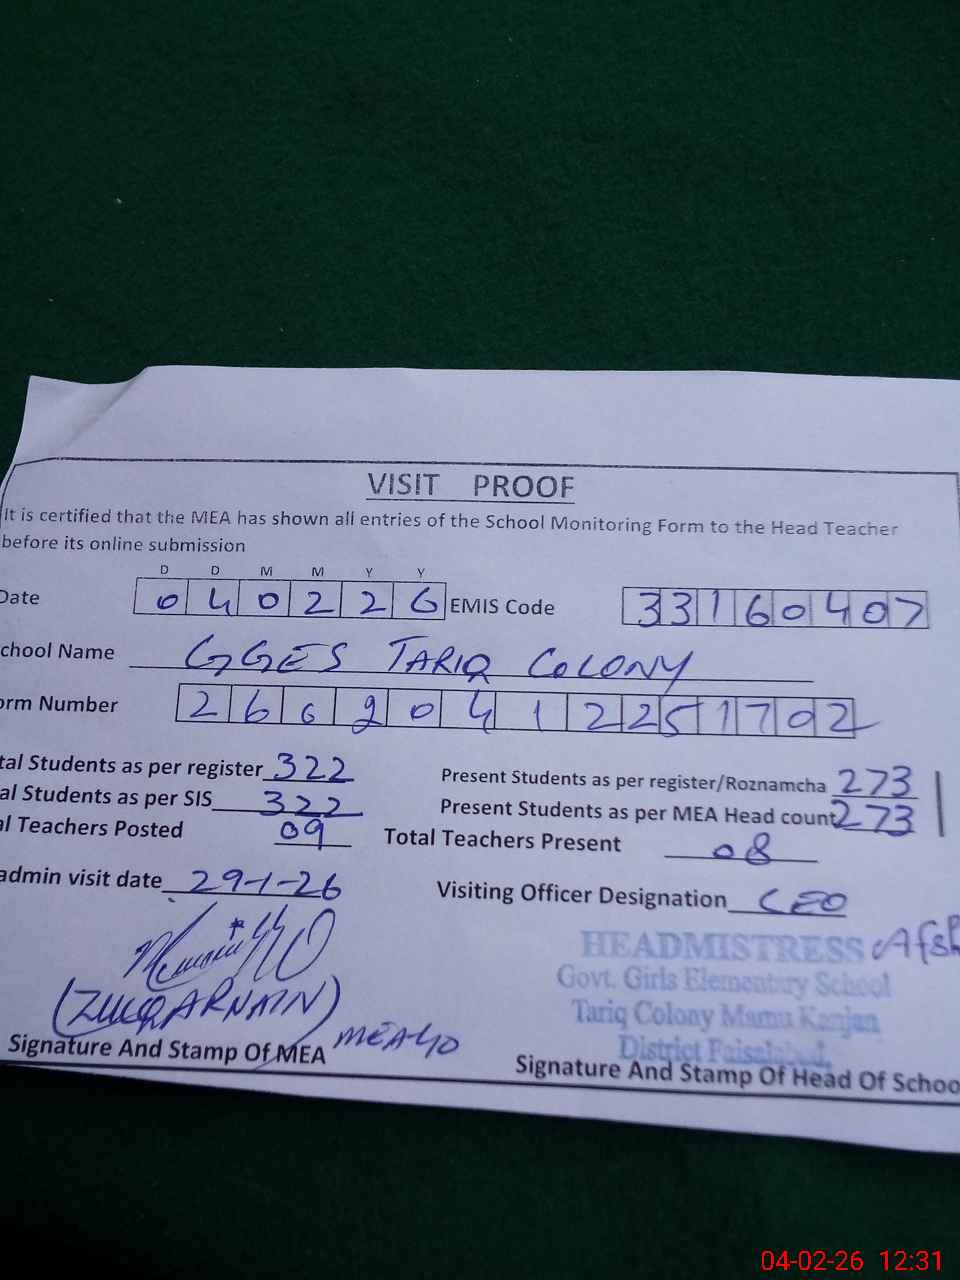 VISIT PROOF
It is certified that the MEA has shown all entries of the School Monitoring Form to the Head Teacher
before its online submission
D D M M Y Y
Date 040226 EMIS Code 33160407
chool Name GGES TARIQ COLONY
orm Number 26620412251702
tal Students as per register 322 Present Students as per register/Roznamcha 273
al Students as per SIS 322 Present Students as per MEA Head count 273
al Teachers Posted 09 Total Teachers Present 08
admin visit date 29-1-26 Visiting Officer Designation CEO
HEADMISTRESS Afsh
Govt. Girls Elementary School
Tariq Colony Mamu Kanjan
District Faisalabad.
(ZULQARNAIN) MEA-40
Signature And Stamp Of MEA Signature And Stamp Of Head Of Schoo
04-02-26 12:31